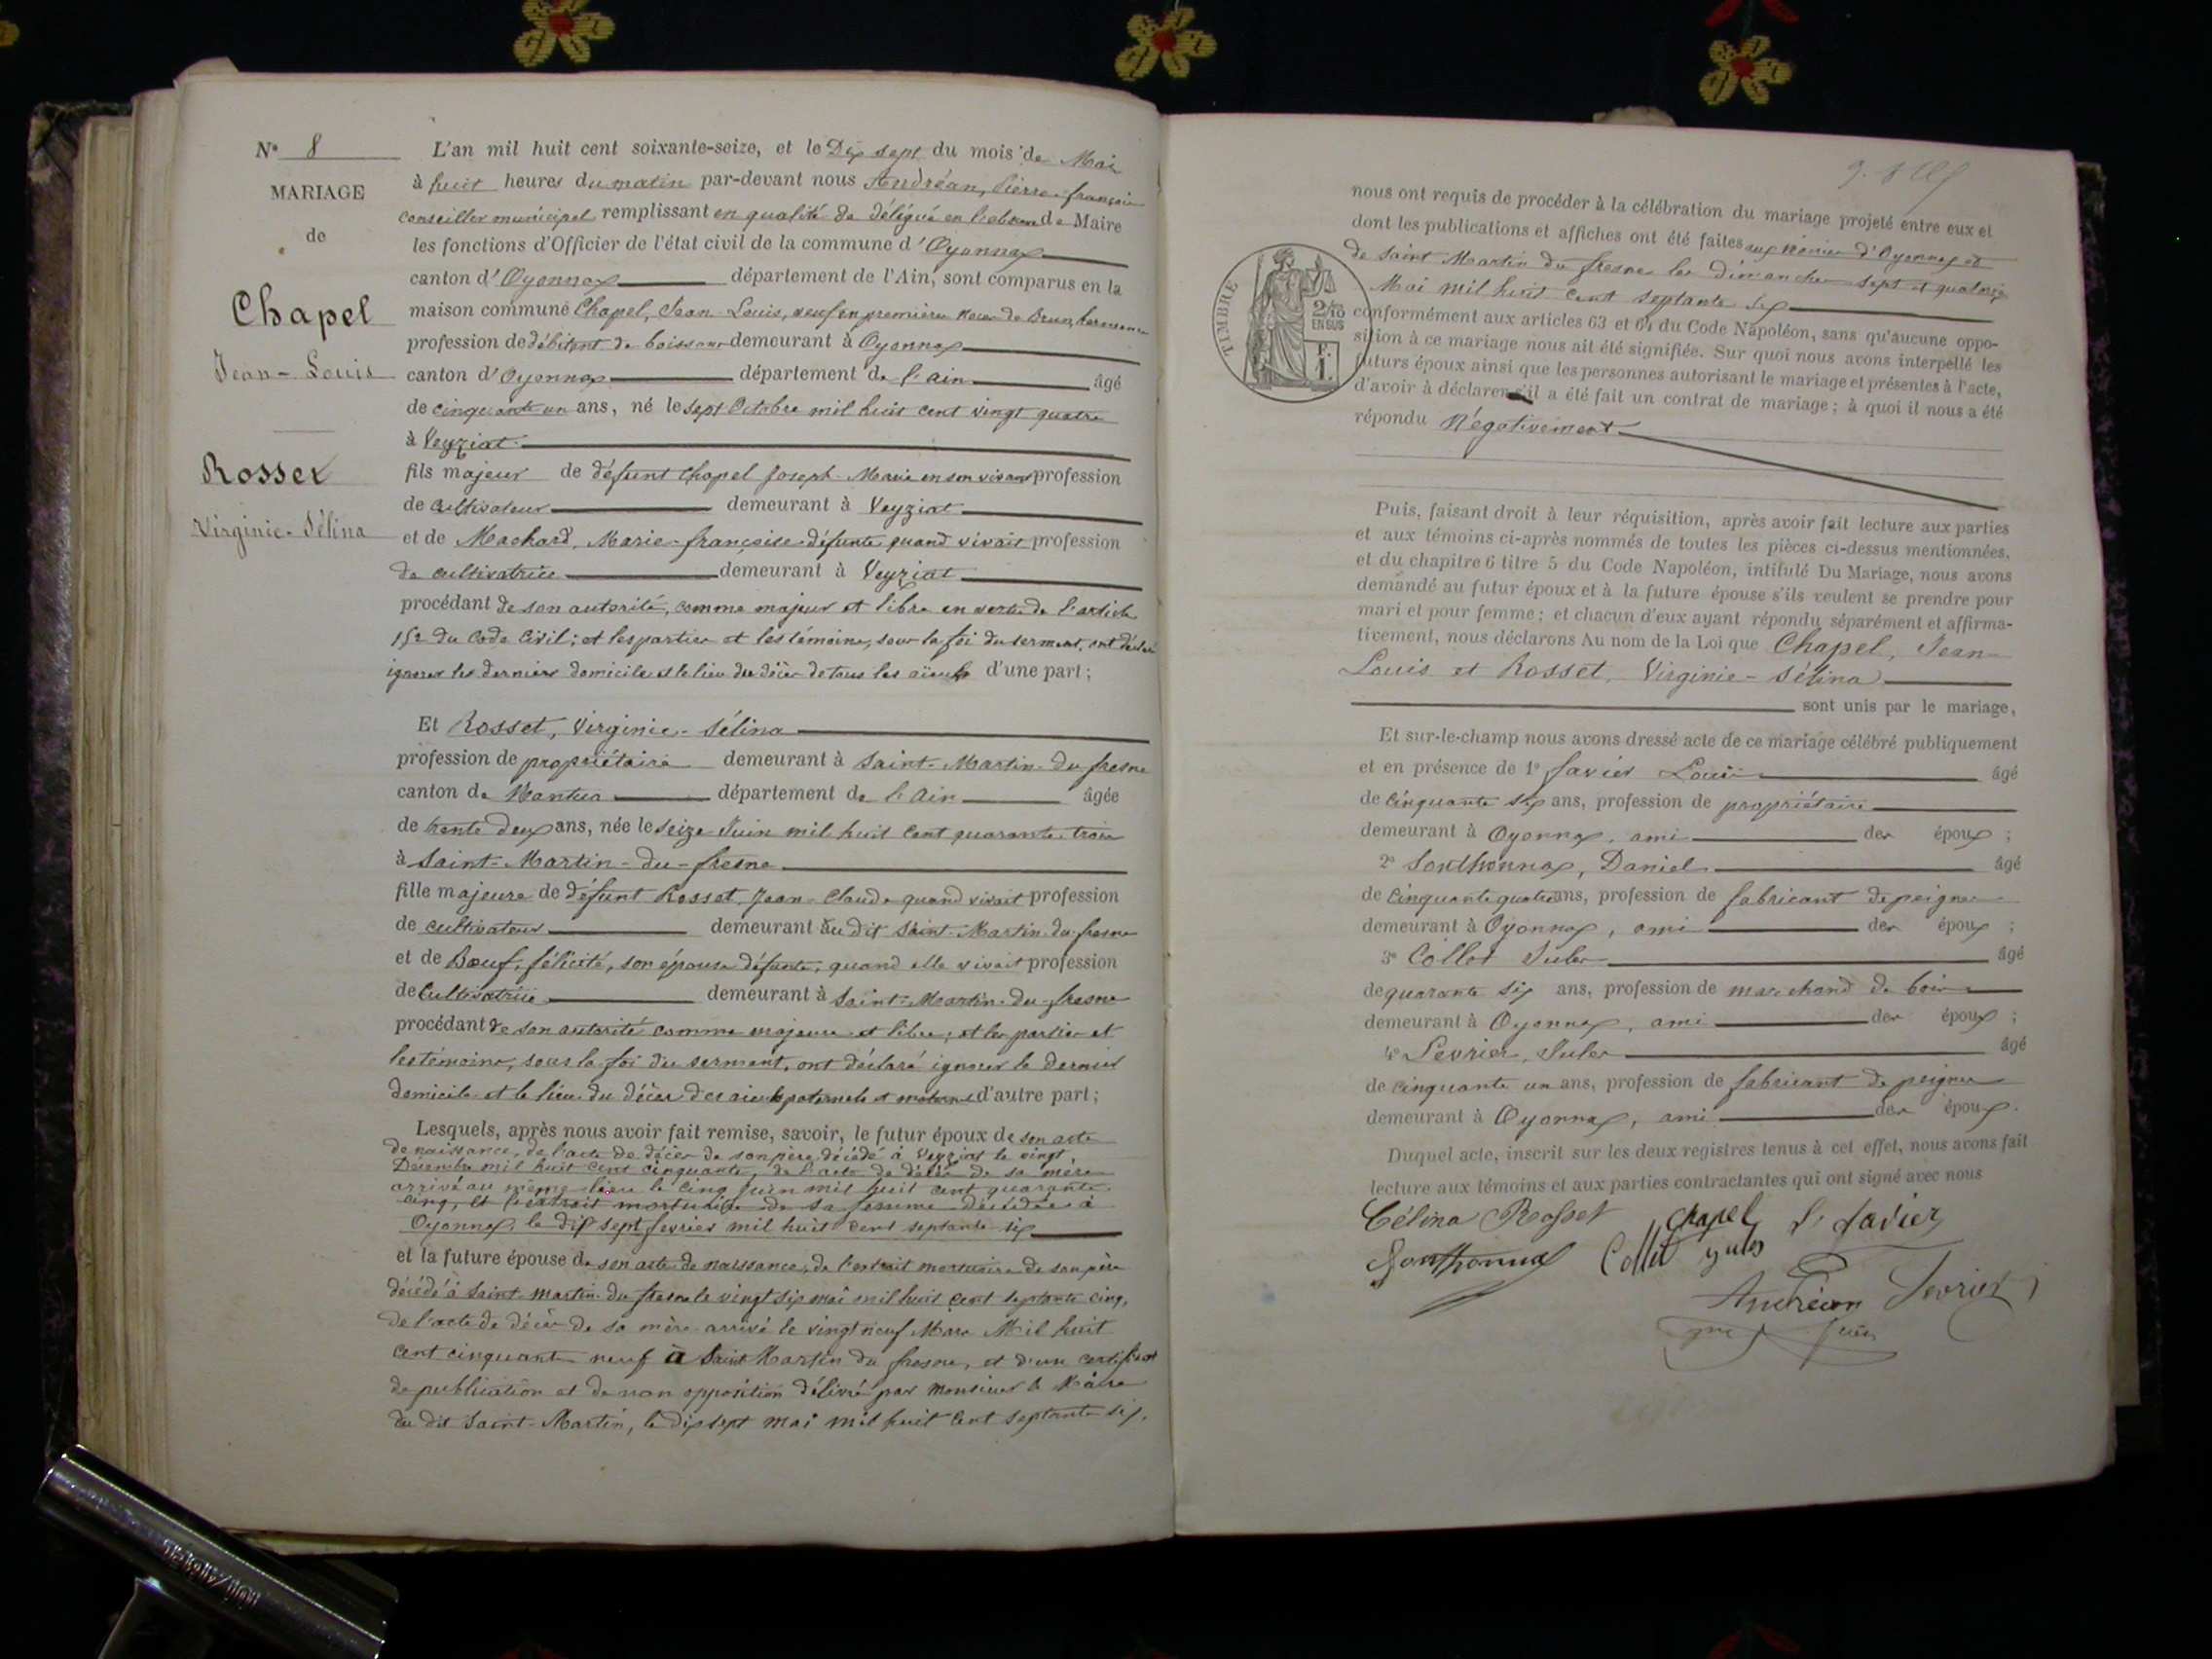 N° 8
MARIAGE
de
Chapel
Jean-Louis
Rosset
Virginie-Sélina
L'an mil huit cent soixante-seize, et le Dix sept du mois de Mai
à huit heures du matin par-devant nous Andréan, Pierre-françois
conseiller municipal remplissant en qualité de délégué en l'absence de Maire
les fonctions d'Officier de l'état civil de la commune d'Oyonnax
canton d'Oyonnax département de l'Ain, sont comparus en la
maison commune Chapel, Jean Louis, veuf en premières noces de Brun,
profession de débitant de boissons demeurant à Oyonnax
canton d'Oyonnax département de l'ain âgé
de cinquante un ans, né le sept Octobre mil huit cent vingt quatre
à Veyziat
fils majeur de défunt Chapel Joseph-Marie en son vivant profession
de cultivateur demeurant à Veyziat
et de Machard, Marie-françoise défunte quand vivait profession
de cultivatrice demeurant à Veyziat
procédant de son autorité, comme majeur et libre en vertu de l'article
152 du Code Civil; et les parties et les témoins, sous la foi du serment, ont déclaré
ignorer les derniers domicile et le lieu du décès de tous les aïeuls d'une part;
Et Rosset, Virginie-Sélina
profession de propriétaire demeurant à Saint-Martin-du fresne
canton de Nantua département de l'Ain âgée
de trente deux ans, née le seize Juin mil huit cent quarante trois
à Saint-Martin-du-fresne
fille majeure de défunt Rosset, Jean-Claude quand vivait profession
de cultivateur demeurant au dit Saint-Martin-du-fresne
et de Bœuf, félicité, son épouse défunte, quand elle vivait profession
de Cultivatrice demeurant à Saint-Martin-du-fresne
procédant de son autorité comme majeure et libre; et les parties et
les témoins, sous la foi du serment, ont déclaré ignorer le dernier
domicile et le lieu du décès des aïeuls paternels et maternels d'autre part;
Lesquels, après nous avoir fait remise, savoir, le futur époux de son acte
de naissance, de l'acte de décès de son père décédé à Veyziat le vingt
Décembre mil huit cent cinquante, de l'acte de décès de sa mère
arrivé au même lieu le cinq Juin mil huit cent quarante
cinq, et l'extrait mortuaire de sa femme décédée à
Oyonnax, le dix sept fevrier mil huit cent septante six
et la future épouse de son acte de naissance, de l'extrait mortuaire de son père
décédé à Saint-Martin-du fresne le vingt six mai mil huit cent septante cinq,
de l'acte de décès de sa mère arrivé le vingt neuf Mars Mil huit
cent cinquante neuf à Saint Martin du fresne, et d'un certificat
de publication et de non opposition délivré par Monsieur le Maire
du dit Saint-Martin, le dix sept mai mil huit cent septante six,
nous ont requis de procéder à la célébration du mariage projeté entre eux et
dont les publications et affiches ont été faites aux Mairies d'Oyonnax et
de Saint Martin du fresne les dimanches sept et quatorze
Mai mil huit cent septante six
TIMBRE
2/10
EN SUS
F.
1.
conformément aux articles 63 et 64 du Code Napoléon, sans qu'aucune oppo-
sition à ce mariage nous ait été signifiée. Sur quoi nous avons interpellé les
futurs époux ainsi que les personnes autorisant le mariage et présentes à l'acte,
d'avoir à déclarer s'il a été fait un contrat de mariage; à quoi il nous a été
répondu Négativement
Puis, faisant droit à leur réquisition, après avoir fait lecture aux parties
et aux témoins ci-après nommés de toutes les pièces ci-dessus mentionnées,
et du chapitre 6 titre 5 du Code Napoléon, intitulé Du Mariage, nous avons
demandé au futur époux et à la future épouse s'ils veulent se prendre pour
mari et pour femme; et chacun d'eux ayant répondu séparément et affirma-
tivement, nous déclarons Au nom de la Loi que Chapel, Jean-
Louis et Rosset, Virginie-Sélina
sont unis par le mariage,
Et sur-le-champ nous avons dressé acte de ce mariage célébré publiquement
et en présence de 1° Savier Louis âgé
de Cinquante six ans, profession de propriétaire
demeurant à Oyonnax, ami des époux;
2° Sonthonnax, Daniel âgé
de Cinquante quatre ans, profession de fabricant de peignes
demeurant à Oyonnax, ami des époux;
3° Collet Jules âgé
de quarante six ans, profession de marchand de bois
demeurant à Oyonnax, ami des époux;
4° Levrier, Jules âgé
de Cinquante un ans, profession de fabricant de peignes
demeurant à Oyonnax, ami des époux.
Duquel acte, inscrit sur les deux registres tenus à cet effet, nous avons fait
lecture aux témoins et aux parties contractantes qui ont signé avec nous
Célina Rosset Chapel L. Savier
Sonthonnax Collet Jules
Andréan Levrier